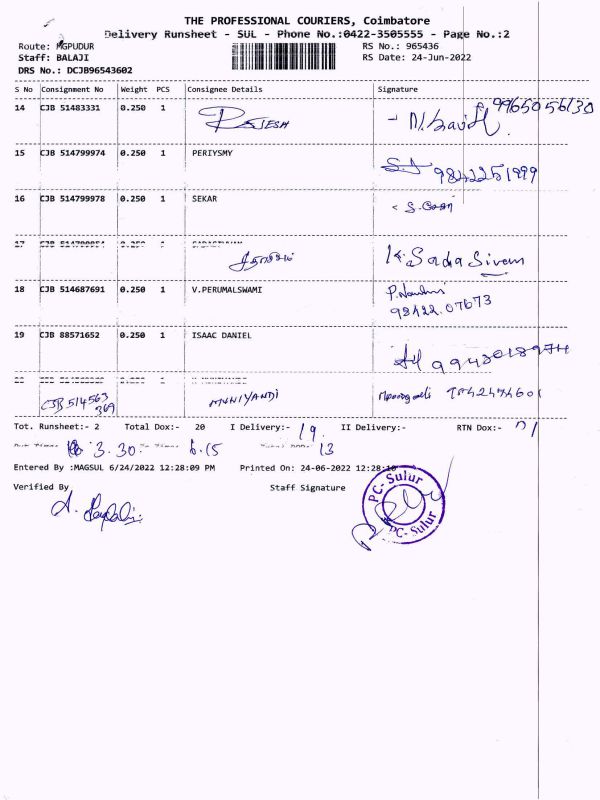 THE PROFESSIONAL COURIERS, Coimbatore
Delivery Runsheet - SUL - Phone No.:0422-3505555 - Page No.:2
Route: MGPUDUR RS No.: 965436
Staff: BALAJI RS Date: 24-Jun-2022
DRS No.: DCJB96543602
S No Consignment No Weight PCS Consignee Details Signature
9965056130
14 CJB 51483331 0.250 1 RAJESH
15 CJB 514799974 0.250 1 PERIYSMY
9842251999
16 CJB 514799978 0.250 1 SEKAR
17
K. Sada Sivem
18 CJB 514687691 0.250 1 V.PERUMALSWAMI
98422.07673
19 CJB 88571652 0.250 1 ISAAC DANIEL
9943018974
CJB 514563 MUNIYANDI
369
Tot. Runsheet:- 2 Total Dox:- 20 I Delivery:- 19 II Delivery:- RTN Dox:- 01
3.30 6.15 13
Entered By :MAGSUL 6/24/2022 12:28:09 PM Printed On: 24-06-2022 12:28:10
Verified By Staff Signature
PC- Sulur
PC- Sulur